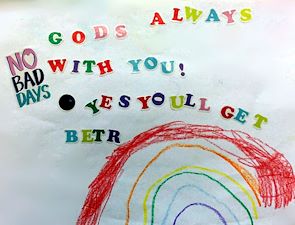 GODS ALWAYS
WITH YOU!
YES YOULL GET
BETR
NO
BAD
DAYS